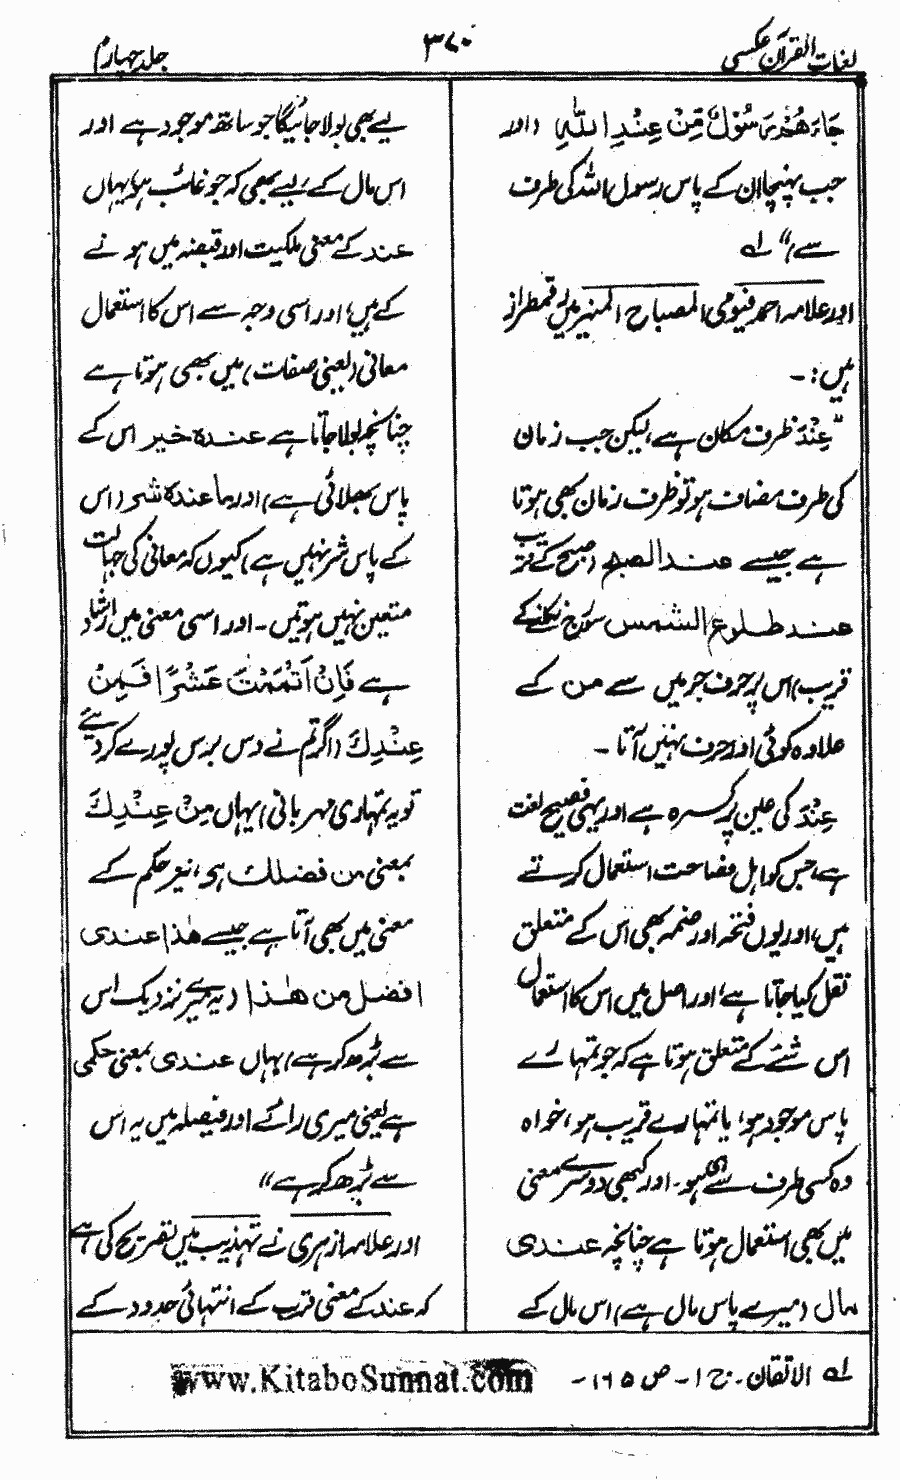 لغات القرآن عکسی
۳۷۰
جلد چہارم
جَاءَھُمْ رَسُوْلٌ مِّنْ عِنْدِ اللّٰہِ (اور
جب پہنچا ان کے پاس رسول اللہ کی طرف
سے)" لہ
اور علامہ احمد فیومی المصباح المنیر میں رقمطراز
ہیں:۔
"عِنْدَ ظرف مکان ہے، لیکن جب زمان
کی طرف مضاف ہو تو ظرف زمان بھی ہوتا
ہے جیسے عند الصبح (صبح کے قریب
عند طلوع الشمس سورج نکلنے کے
قریب) اس پر حرف جر میں سے من کے
علاوہ کوئی اور حرف نہیں آتا ۔
عِنْدَ کی عین پر کسرہ ہے اور یہی فصیح لغت
ہے، جس کو اہل فصاحت استعمال کرتے
ہیں، اور یوں فتحہ اور ضمہ بھی اس کے متعلق
نقل کیا جاتا ہے، اور اصل میں اس کا استعمال
اس شئے کے متعلق ہوتا ہے کہ جو تمہارے
پاس موجود ہو، یا تمہارے قریب ہو، خواہ
وہ کسی طرف سے بھی ہو۔ اور کبھی دوسرے معنی
میں بھی استعمال ہوتا ہے چنانچہ عندی
مال (میرے پاس مال ہے) اس مال کے
لیے بھی بولا جائیگا جو ساتھ موجود ہے اور
اس مال کے لیے بھی کہ جو غائب ہو، یہاں
عند کے معنی ملکیت اور قبضہ میں ہو نے
کے ہیں، اور اسی وجہ سے اس کا استعمال
معانی (یعنی صفات) میں بھی ہوتا ہے
چنانچہ بولا جاتا ہے عندہ خیر اس کے
پاس بھلائی ہے) اور ما عندہ شر (اس
کے پاس شر نہیں ہے) کیوں کہ معانی کی جہالت
متعین نہیں ہوتیں ۔ اور اسی معنی میں ارشاد
ہے فَاِنْ اَتْمَمْتَ عَشْرًا فَمِنْ
عِنْدِكَ (اگر تم نے دس برس پورے کر دیئے
تو یہ تمہاری مہربانی) یہاں مِنْ عِنْدِكَ
بمعنی من فضلك ہے، نیز حکم کے
معنی میں بھی آتا ہے جیسے ھٰذا عندی
افضل من ھٰذا (یہ میرے نزدیک اس
سے بڑھ کر ہے) یہاں عندی بمعنی حکمی
ہے یعنی میری رائے اور فیصلہ میں یہ اس
سے بڑھ کر ہے"
اور علامہ ازہری نے تہذیب میں تصریح کی ہے
کہ عند کے معنی قرب کے انتہائی حدود کے
لہ الاتقان ۔ ج ۱ ۔ ص ۱۶۵ ۔
www.KitaboSunnat.com